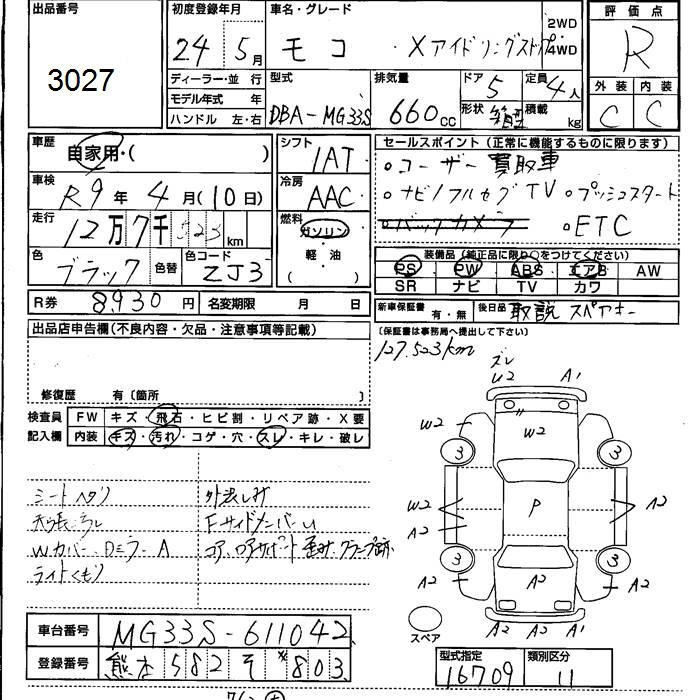 出品番号
3027
初度登録年月
24 年 5月
車名・グレード
モコ ・Xアイドリングストップ
2WD
4WD
評価点
R
外装 内装
C C
ディーラー・並行
モデル年式 年
ハンドル 左・右
型式
DBA-MG33S
排気量
660cc
ドア
5
形状
定員
4人
積載
kg
車歴
自家用・( )
車検
R9年4月(10日)
走行
12万7千523km
色
ブラック
色替
色コード
ZJ3
シフト
1AT
冷房
AAC
燃料
ガソリン
軽油
( )
セールスポイント(正常に機能するものに限ります)
○ユーザー買取車
○ナビ/フルセグTV ○プッシュスタート
○バックカメラ ○ETC
装備品(純正品に限り○をつけてください)
PS PW ABS エアB AW
SR ナビ TV カワ
R券 8,930円 名変期限 月 日
新車保証書 有・無 後日品 取説 スペアキー
(保証書は事務局へ提出して下さい)
127,523km
出品店申告欄(不良内容・欠品・注意事項等記載)
修復歴 有〔箇所 〕
検査員 FW キズ・飛石・ヒビ割・リペア跡・X要
記入欄 内装 キズ・汚れ・コゲ・穴・スレ・キレ・破レ
シートヘタリ
Wカバー、Dミラー A
ライトくもり
外装しみ
FサイドメンバーU
コア、ロアサポート歪み、クランプ跡
ズレ
U2 A1
W2
W2
3 3
W2
A2
P
A2
3 3
A2 A2
A2
A2 A2 A1
スペア
車台番号 MG33S-611042
登録番号 熊本 582 そ *803
型式指定 16709
類別区分 11